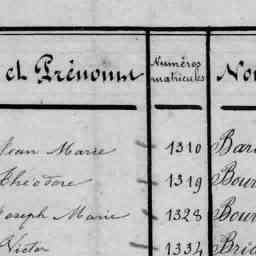 et Prénoms Numéros No
matricules
Jean Marie 1310 Bar
Théodore 1319 Bour
Joseph Marie 1328 Bour
Victor 1334 Brid